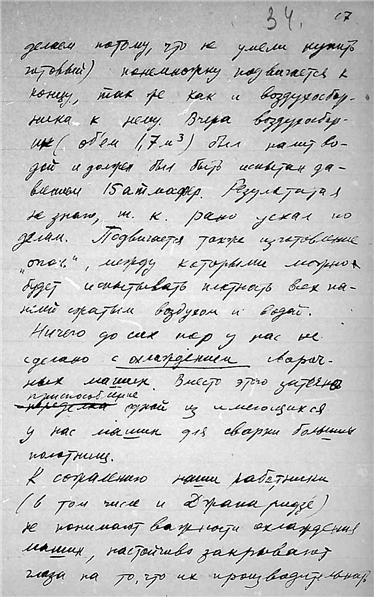 34. 17
делаем потому, что не умели купить
готовый) понемножку подвигается к
концу, так же как и воздухосбор-
ника к нему. Вчера воздухосбор-
ник (объем 1,7 м³) был налит во-
дой и должен был быть испытан да-
влением 15 атмосфер. Результата я
не знаю, т. к. рано уехал по
делам. Подвигается также изготовление
между которыми можно
будет испытывать плотность всех па-
нлей сжатым воздухом и водой.
Ничего до сих пор у нас не
сделано с охлаждением свароч-
ных машин. Вместо этого
приспособление
переделка одной из имеющихся
у нас машин для сварки больших
полотнищ.
К сожалению наши работники
(в том числе и Джапаридзе)
не понимают важности охлаждения
машин, настойчиво закрывают
глаза на то, что их производительность